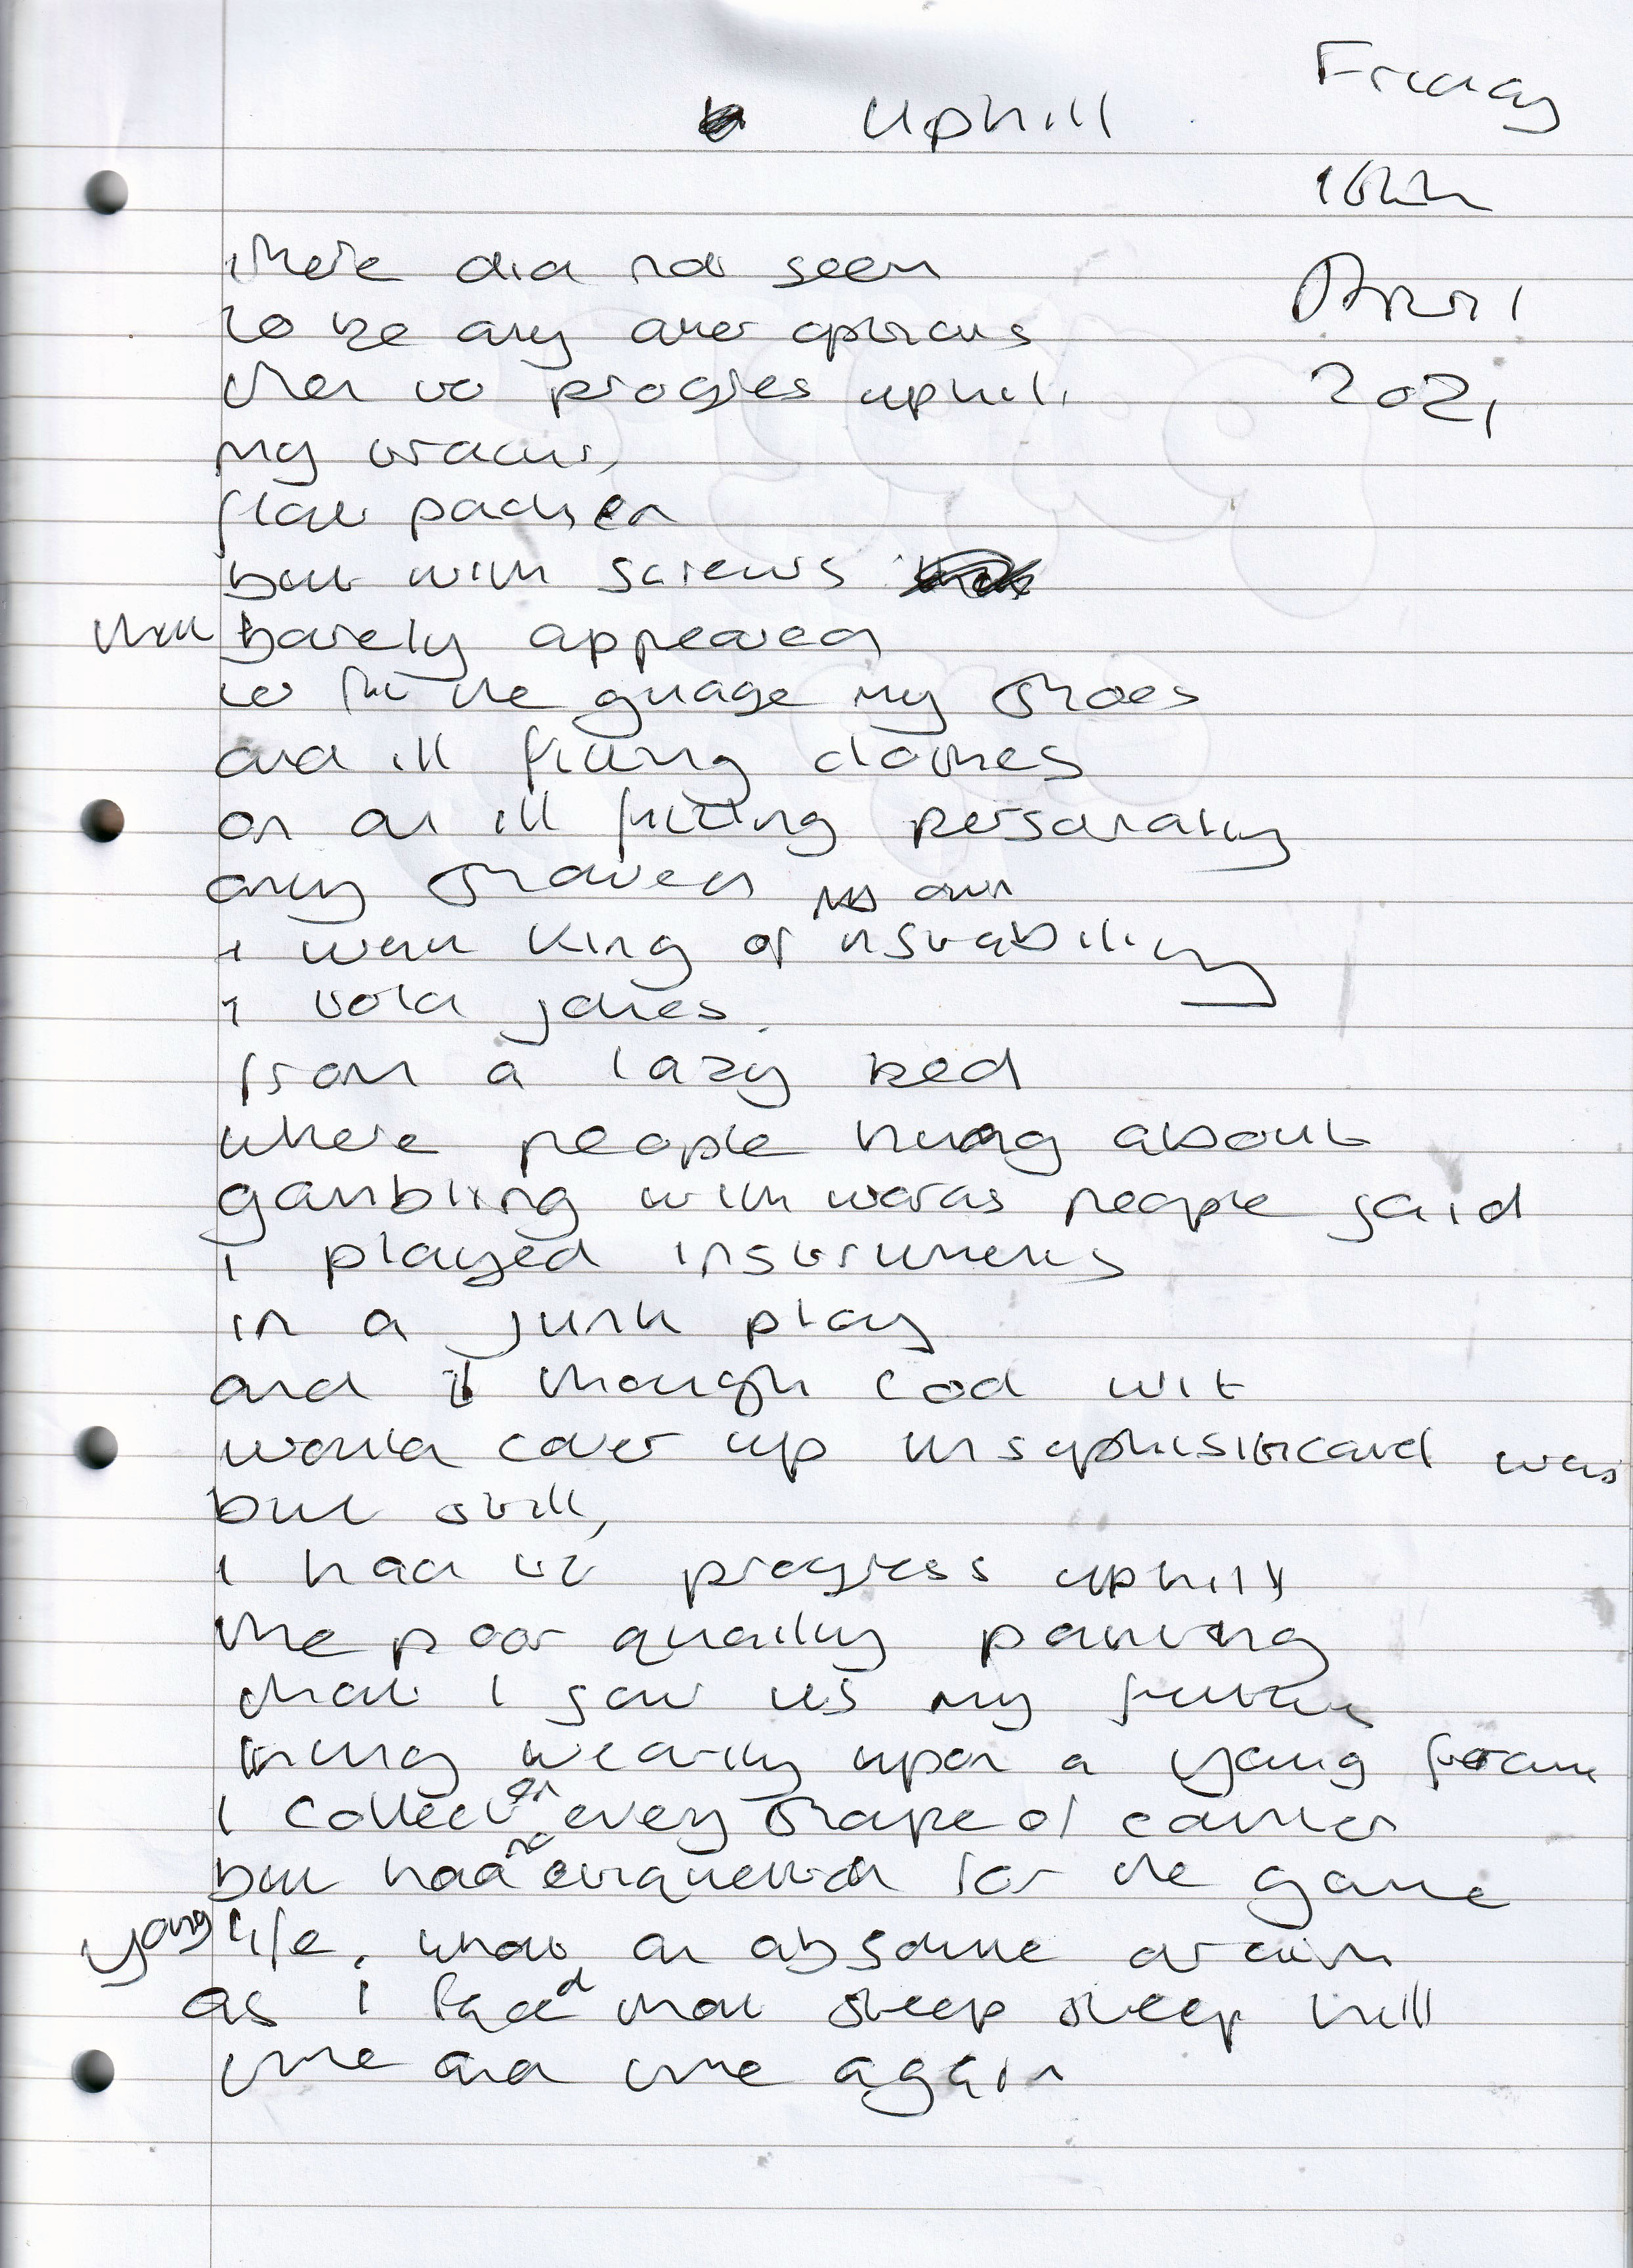 Uphill
Friday
16th
April
2021
there did not seem
to be any other options
then to progres uphill
my tracks,
flat packed
but with screws
that barely appeared
to fit the guage my shoes
and ill fitting clothes
on an ill fitting personality
only shaved
I was king of
I told jokes.
from a lazy bed
where people hung about
gambling with words people said
I played instruments
in a junk play
and I though cod wit
would cover up unsophisticated was
but still,
I had to progress uphill
the poor quality painting
that I saw as my future
hung wearily upon a young frame
I collected every shape of
but had no etiquette for the game
young life. what an absolute
as I faced that steep steep hill
time and time again